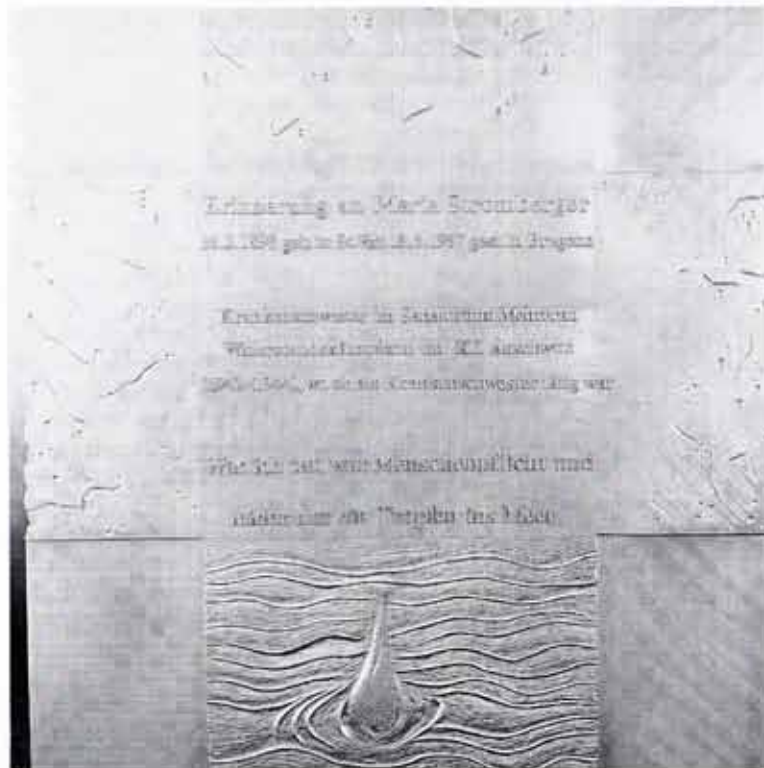 Erinnerung an Maria Stromberger
geb. in gest. in Bregenz
Krankenschwester im Sanatorium Mehrerau
Widerstandskämpferin im KZ Auschwitz
wo sie als Krankenschwester tätig war
Was ich tat, war Menschenpflicht und
nur ein Tropfen ins Meer.